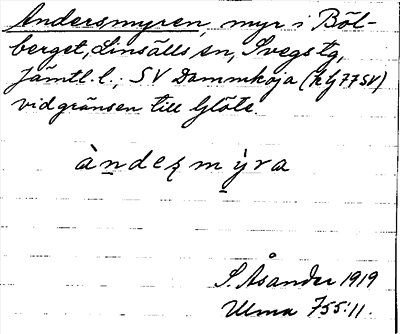 Andersmyren, myr i Böl-
berget, Linsälls sn, Svegs tg,
Jämtl. l.; SV Dammkoja (h G 77 SV)
vid gränsen till Glöte.
àndeʂm ýra
S. Åsander 1919
Ulma 755:11.